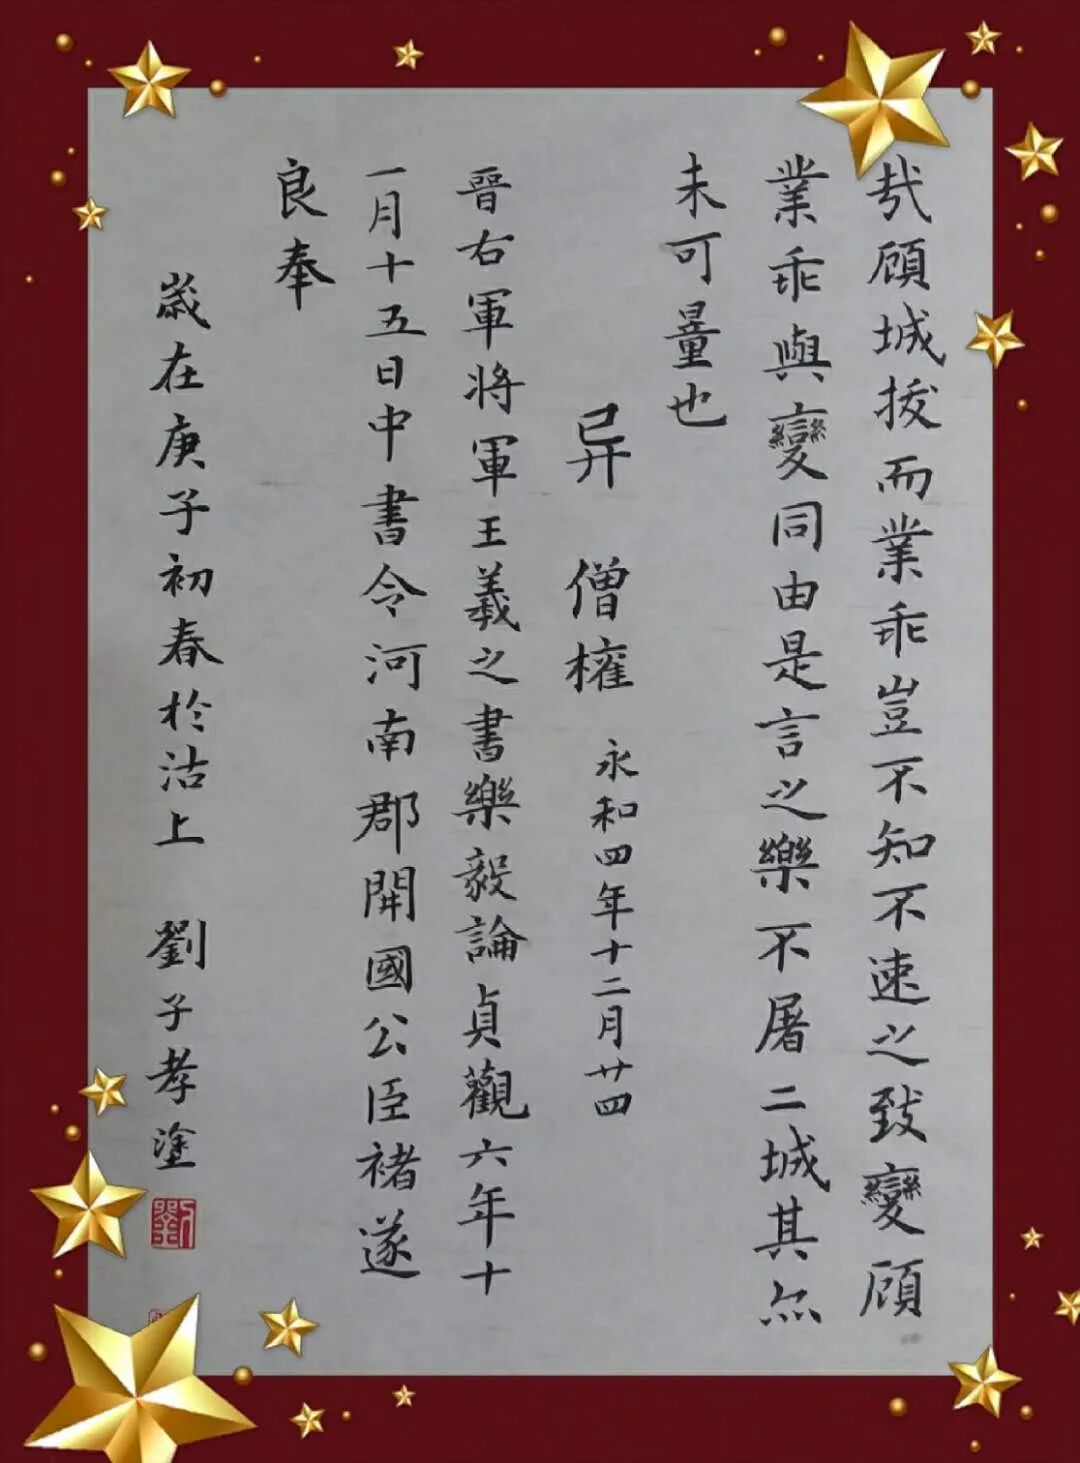 哉顧城拔而業乖豈不知不速之致變顧
業乖與變同由是言之樂不屠二城其亦
未可量也
异　僧權　永和四年十二月廿四
晉右軍將軍王羲之書樂毅論貞觀六年十
一月十五日中書令河南郡開國公臣褚遂
良奉
歲在庚子初春於沽上　劉子孝塗